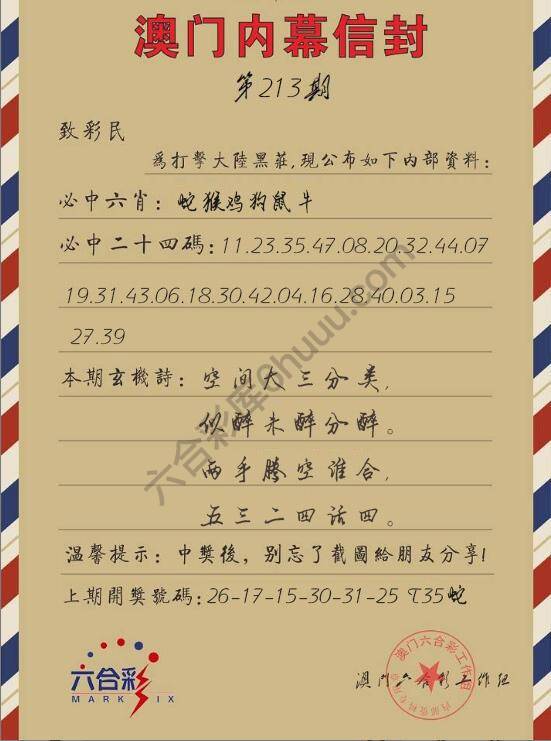 澳门内幕信封
第213期
致彩民
為打擊大陸黑莊,現公布如下内部資料:
必中六肖: 蛇猴鸡狗鼠牛
必中二十四碼:11.23.35.47.08.20.32.44.07
19.31.43.06.18.30.42.04.16.28.40.03.15
27.39
本期玄機詩: 空间大三分类,
似醉未醉分醉。
两手腾空谁合,
五三二四话四。
温馨提示: 中獎後, 别忘了截圖給朋友分享!
上期開獎號碼:26-17-15-30-31-25 T35蛇
六合彩库6huuu.com
六合彩
MARK SIX
澳门六合彩工作组
澳门六合彩工作组